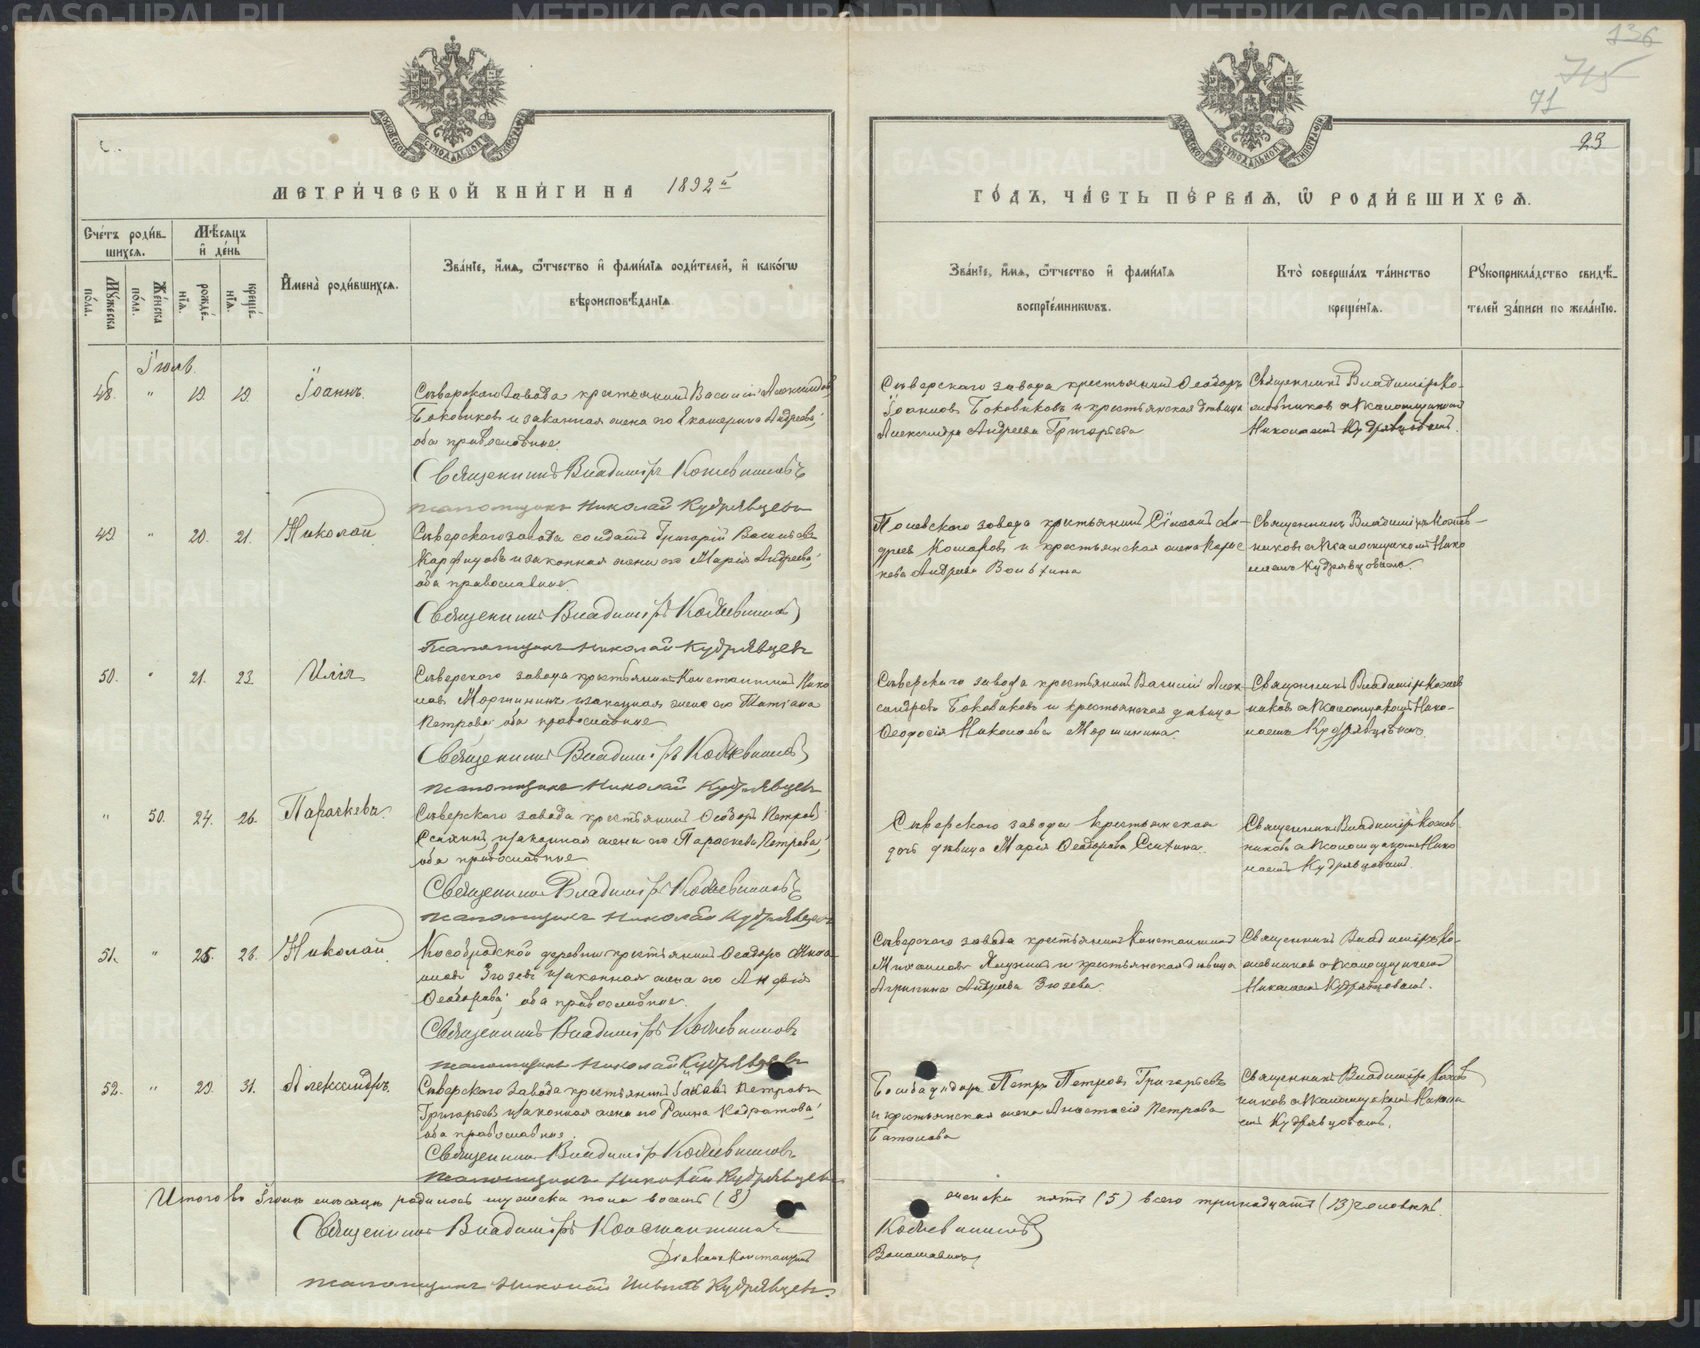 136
715
71
23
МОСКОВСКОЙ СѴНОДАЛЬНОЙ ТИПОГРАФІИ
МОСКОВСКОЙ СѴНОДАЛЬНОЙ ТИПОГРАФІИ
МЕТРИ́ЧЕСКОЙ КНИ́ГИ НА 1892й
ГО́ДЪ, ЧА́СТЬ ПЕ́РВАѦ, Ѡ҆ РОДИ́ВШИХСѦ.
Сче́тъ роди́в-
шихсѧ.
Мѣ́сѧцъ
и҆ де́нь
Мꙋ́жеска
по́ла.
Же́нска
по́ла.
рожде́-
нїѧ.
креще́-
нїѧ.
И҆мена̀ роди́вшихсѧ.
Зва́нїе, и҆́мѧ, ѻ҆́тчество и҆ фами́лїѧ роди́телей, и҆ како́гѡ
вѣроисповѣ́данїѧ.
Зва́нїе, и҆́мѧ, ѻ҆́тчество и҆ фами́лїѧ
воспрїе́мникѡвъ.
Кто̀ соверша́лъ та́инство
креще́нїѧ.
Рꙋкоприкла́дство свидѣ́-
телей за́писи по жела́нїю.
Іюль.
48. " 19 19. Іоаннъ.
Сѣверскаго завода крестьянинъ Василій Александровъ
Боковиковъ и законная жена его Екатерина Андреева;
оба православные.
Священникъ Владиміръ Кожевниковъ
псаломщикъ Николай Кудрявцевъ
Сѣверскаго завода крестьянинъ Ѳеодоръ
Іоанновъ Боковиковъ и крестьянская дѣвица
Александра Андреева Григорьева
Священникъ Владиміръ Ко-
жевниковъ съ псаломщикомъ
Николаемъ Кудрявцовымъ.
49. " 20. 21. Николай.
Сѣверскаго завода солдатъ Григорій Васильевъ
и законная жена его Марія Андреева;
оба православные.
Священникъ Владиміръ Кожевниковъ
Псаломщикъ Николай Кудрявцевъ
Полевского завода крестьянинъ Ан-
дреевъ и крестьянская жена
Андреева
Священникъ Владиміръ Кожев-
никовъ съ псаломщикомъ Нико
лаемъ Кудрявцовымъ.
50. " 21. 23. Илія
Сѣверскаго завода крестьянинъ Константинъ Нико
лаевъ и законная жена его Татіана
Петрова оба православные
Священникъ Владиміръ Кожевниковъ
псаломщикъ Николай Кудрявцевъ
Сѣверскаго завода крестьянинъ Василій Алек-
сандровъ Боковиковъ и крестьянская дѣвица
Ѳеодосія Николаева
Священникъ Владиміръ Кожев
никовъ съ псаломщикомъ Нико-
лаемъ Кудрявцовымъ.
" 50. 24. 26. Параскева.
Сѣверскаго завода крестьянинъ Ѳеодоръ Петровъ
и законная жена его Параскева Петрова;
оба православные
Священникъ Владиміръ Кожевниковъ
псаломщикъ Николай Кудрявцевъ
Сѣверскаго завода крестьянская
дочь дѣвица Марія Ѳеодорова
Священникъ Владиміръ Кожев
никовъ съ псаломщикомъ Нико
лаемъ Кудрявцовымъ
51. " 25. 26. Николай.
Кособродской деревни крестьянинъ Ѳеодоръ
Зюзевъ и законная жена его
Ѳеодорова; оба православные.
Священникъ Владиміръ Кожевниковъ
псаломщикъ Николай Кудрявцевъ
Сѣверскаго завода крестьянинъ Константинъ
Михаиловъ и крестьянская дѣвица
Агрипина Андреева Зюзева.
Священникъ Владиміръ Ко-
жевниковъ съ псаломщикомъ
Николаемъ Кудрявцовымъ.
52. " 29. 31. Александръ.
Сѣверскаго завода крестьянинъ Петровъ
Григорьевъ и законная жена его
оба православные.
Священникъ Владиміръ Кожевниковъ
псаломщикъ Николай Кудрявцевъ
Петръ Петровъ Григорьевъ
и крестьянская жена Анастасія Петрова
Священникъ Владиміръ Кожев
никовъ съ псаломщикомъ Никола
емъ Кудрявцовымъ.
Итого въ Іюлѣ мѣсяцѣ родилось мужеска пола восемь (8)
женска пять (5) всего тринадцать (13) человѣкъ.
Священникъ Владиміръ Константиновъ
Кожевниковъ
Діаконъ Константинъ
псаломщикъ Николай Кудрявцевъ.
METRIKI.GASO-URAL.RU